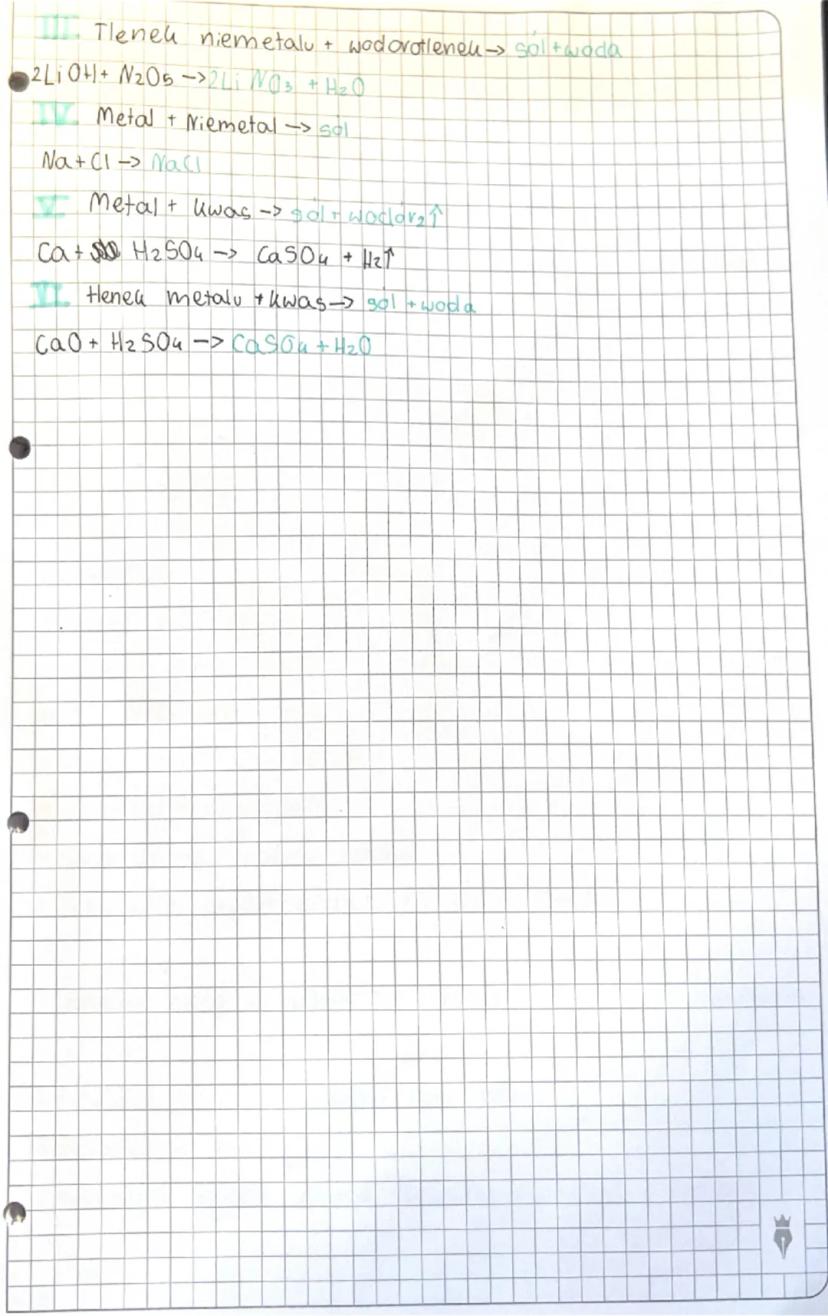 III Tlenek niemetalu + wodorotlenek -> sól + woda
2LiOH + N2O5 -> 2LiNO3 + H2O
IV Metal + Niemetal -> sól
Na + Cl -> NaCl
V Metal + kwas -> sól + wodór2↑
Ca + H2SO4 -> CaSO4 + H2↑
VI tlenek metalu + kwas -> sól + woda
CaO + H2SO4 -> CaSO4 + H2O